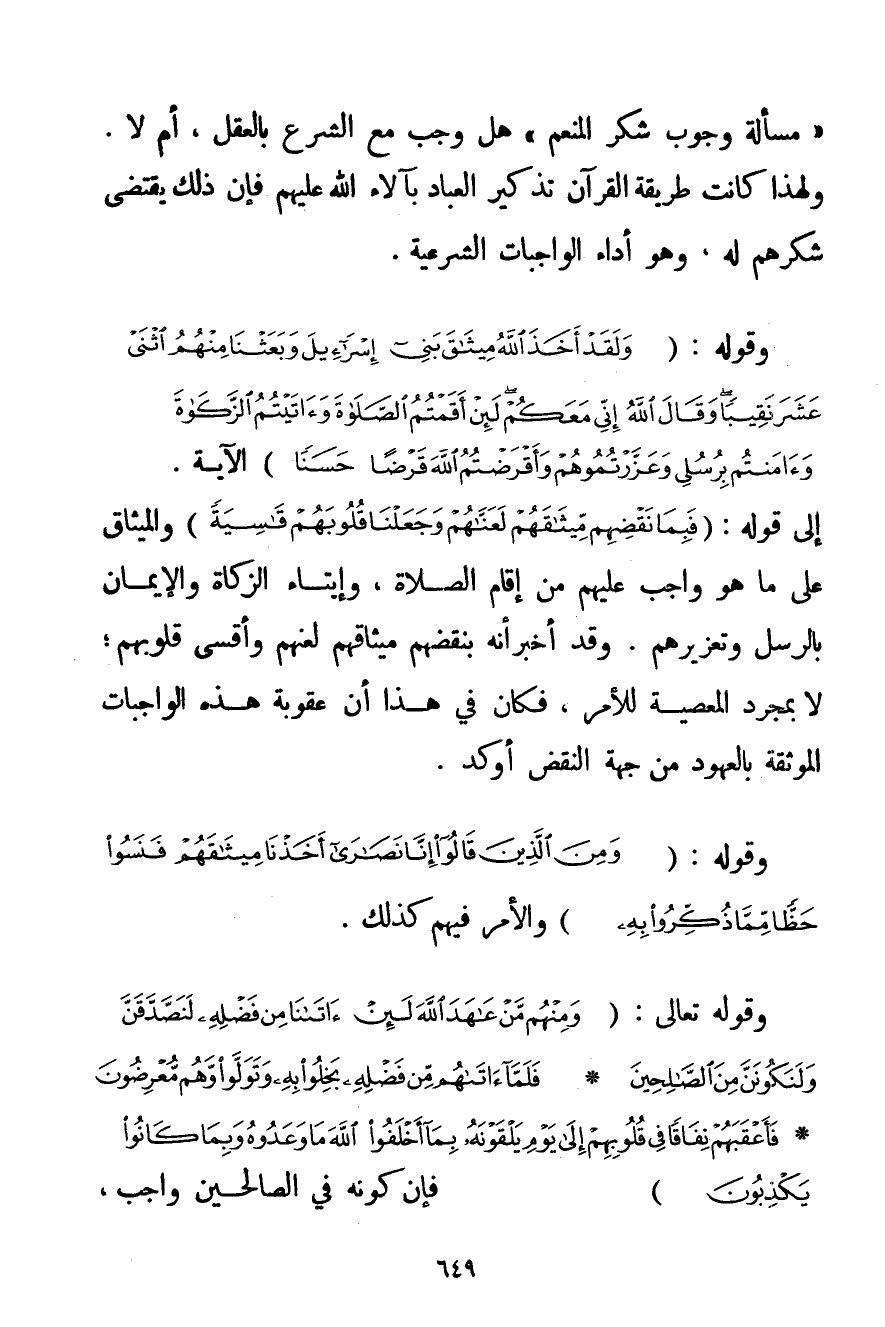 « مسألة وجوب شكر المنعم » هل وجب مع الشرع بالعقل ، أم لا .
ولهذا كانت طريقة القرآن تذكير العباد بآلاء الله عليهم فإن ذلك يقتضى
شكرهم له ، وهو أداء الواجبات الشرعية .
وقوله : ( وَلَقَدْ أَخَذَ ٱللَّهُ مِيثَٰقَ بَنِىٓ إِسْرَٰٓءِيلَ وَبَعَثْنَا مِنْهُمُ ٱثْنَىْ
عَشَرَ نَقِيبًا ۖ وَقَالَ ٱللَّهُ إِنِّى مَعَكُمْ ۖ لَئِنْ أَقَمْتُمُ ٱلصَّلَوٰةَ وَءَاتَيْتُمُ ٱلزَّكَوٰةَ
وَءَامَنتُم بِرُسُلِى وَعَزَّرْتُمُوهُمْ وَأَقْرَضْتُمُ ٱللَّهَ قَرْضًا حَسَنًا ) الآية .
إلى قوله : ( فَبِمَا نَقْضِهِم مِّيثَٰقَهُمْ لَعَنَّٰهُمْ وَجَعَلْنَا قُلُوبَهُمْ قَٰسِيَةً ) والميثاق
على ما هو واجب عليهم من إقام الصلاة ، وإيتاء الزكاة والإيمان
بالرسل وتعزيرهم . وقد أخبر أنه بنقضهم ميثاقهم لعنهم وأقسى قلوبهم ؛
لا بمجرد المعصية للأمر ، فكان في هذا أن عقوبة هذه الواجبات
الموثقة بالعهود من جهة النقض أوكد .
وقوله : ( وَمِنَ ٱلَّذِينَ قَالُوٓا۟ إِنَّا نَصَٰرَىٰٓ أَخَذْنَا مِيثَٰقَهُمْ فَنَسُوا۟
حَظًّا مِّمَّا ذُكِّرُوا۟ بِهِۦ ) والأمر فيهم كذلك .
وقوله تعالى : ( وَمِنْهُم مَّنْ عَٰهَدَ ٱللَّهَ لَئِنْ ءَاتَىٰنَا مِن فَضْلِهِۦ لَنَصَّدَّقَنَّ
وَلَنَكُونَنَّ مِنَ ٱلصَّٰلِحِينَ * فَلَمَّآ ءَاتَىٰهُم مِّن فَضْلِهِۦ بَخِلُوا۟ بِهِۦ وَتَوَلَّوا۟ وَّهُم مُّعْرِضُونَ
* فَأَعْقَبَهُمْ نِفَاقًا فِى قُلُوبِهِمْ إِلَىٰ يَوْمِ يَلْقَوْنَهُۥ بِمَآ أَخْلَفُوا۟ ٱللَّهَ مَا وَعَدُوهُ وَبِمَا كَانُوا۟
يَكْذِبُونَ ) فإن كونه في الصالحين واجب ،
٦٤٩